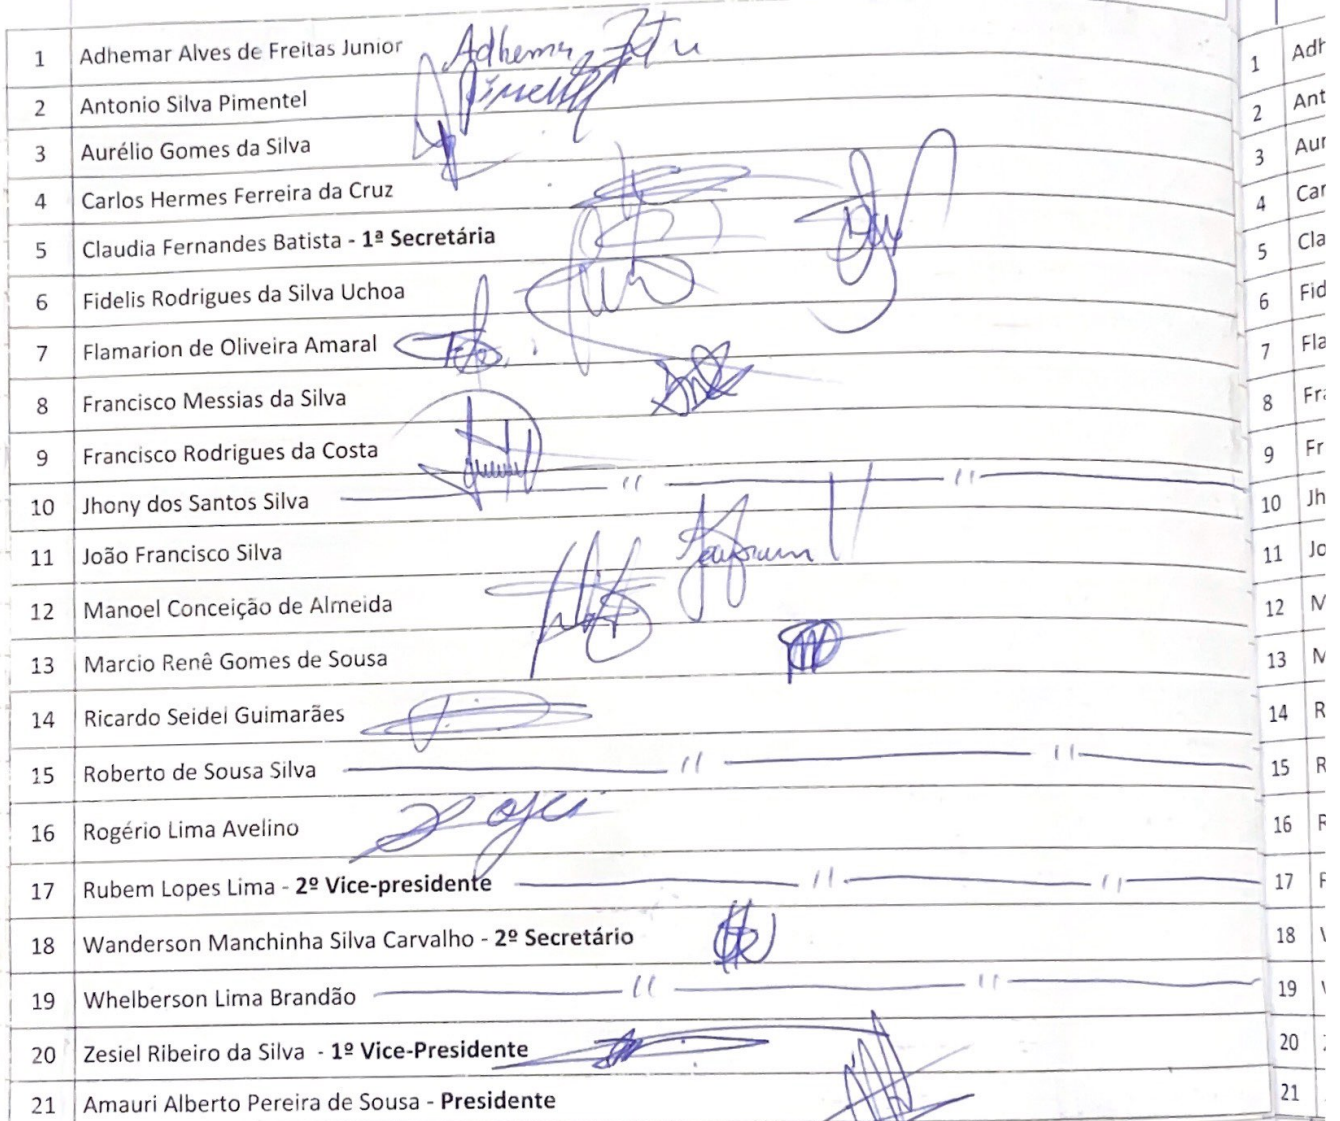 1 Adhemar Alves de Freitas Junior Adhemar
2 Antonio Silva Pimentel Pimentel
3 Aurélio Gomes da Silva
4 Carlos Hermes Ferreira da Cruz
5 Claudia Fernandes Batista - 1ª Secretária
6 Fidelis Rodrigues da Silva Uchoa
7 Flamarion de Oliveira Amaral
8 Francisco Messias da Silva
9 Francisco Rodrigues da Costa
10 Jhony dos Santos Silva
11 João Francisco Silva
12 Manoel Conceição de Almeida
13 Marcio Renê Gomes de Sousa
14 Ricardo Seidel Guimarães
15 Roberto de Sousa Silva
16 Rogério Lima Avelino
17 Rubem Lopes Lima - 2º Vice-presidente
18 Wanderson Manchinha Silva Carvalho - 2º Secretário
19 Whelberson Lima Brandão
20 Zesiel Ribeiro da Silva - 1º Vice-Presidente
21 Amauri Alberto Pereira de Sousa - Presidente
1 Adh
2 Ant
3 Aur
4 Car
5 Cla
6 Fid
7 Fla
8 Fra
9 Fr
10 Jh
11 Jo
12 M
13 M
14 R
15 R
16 R
17
18
19
20
21